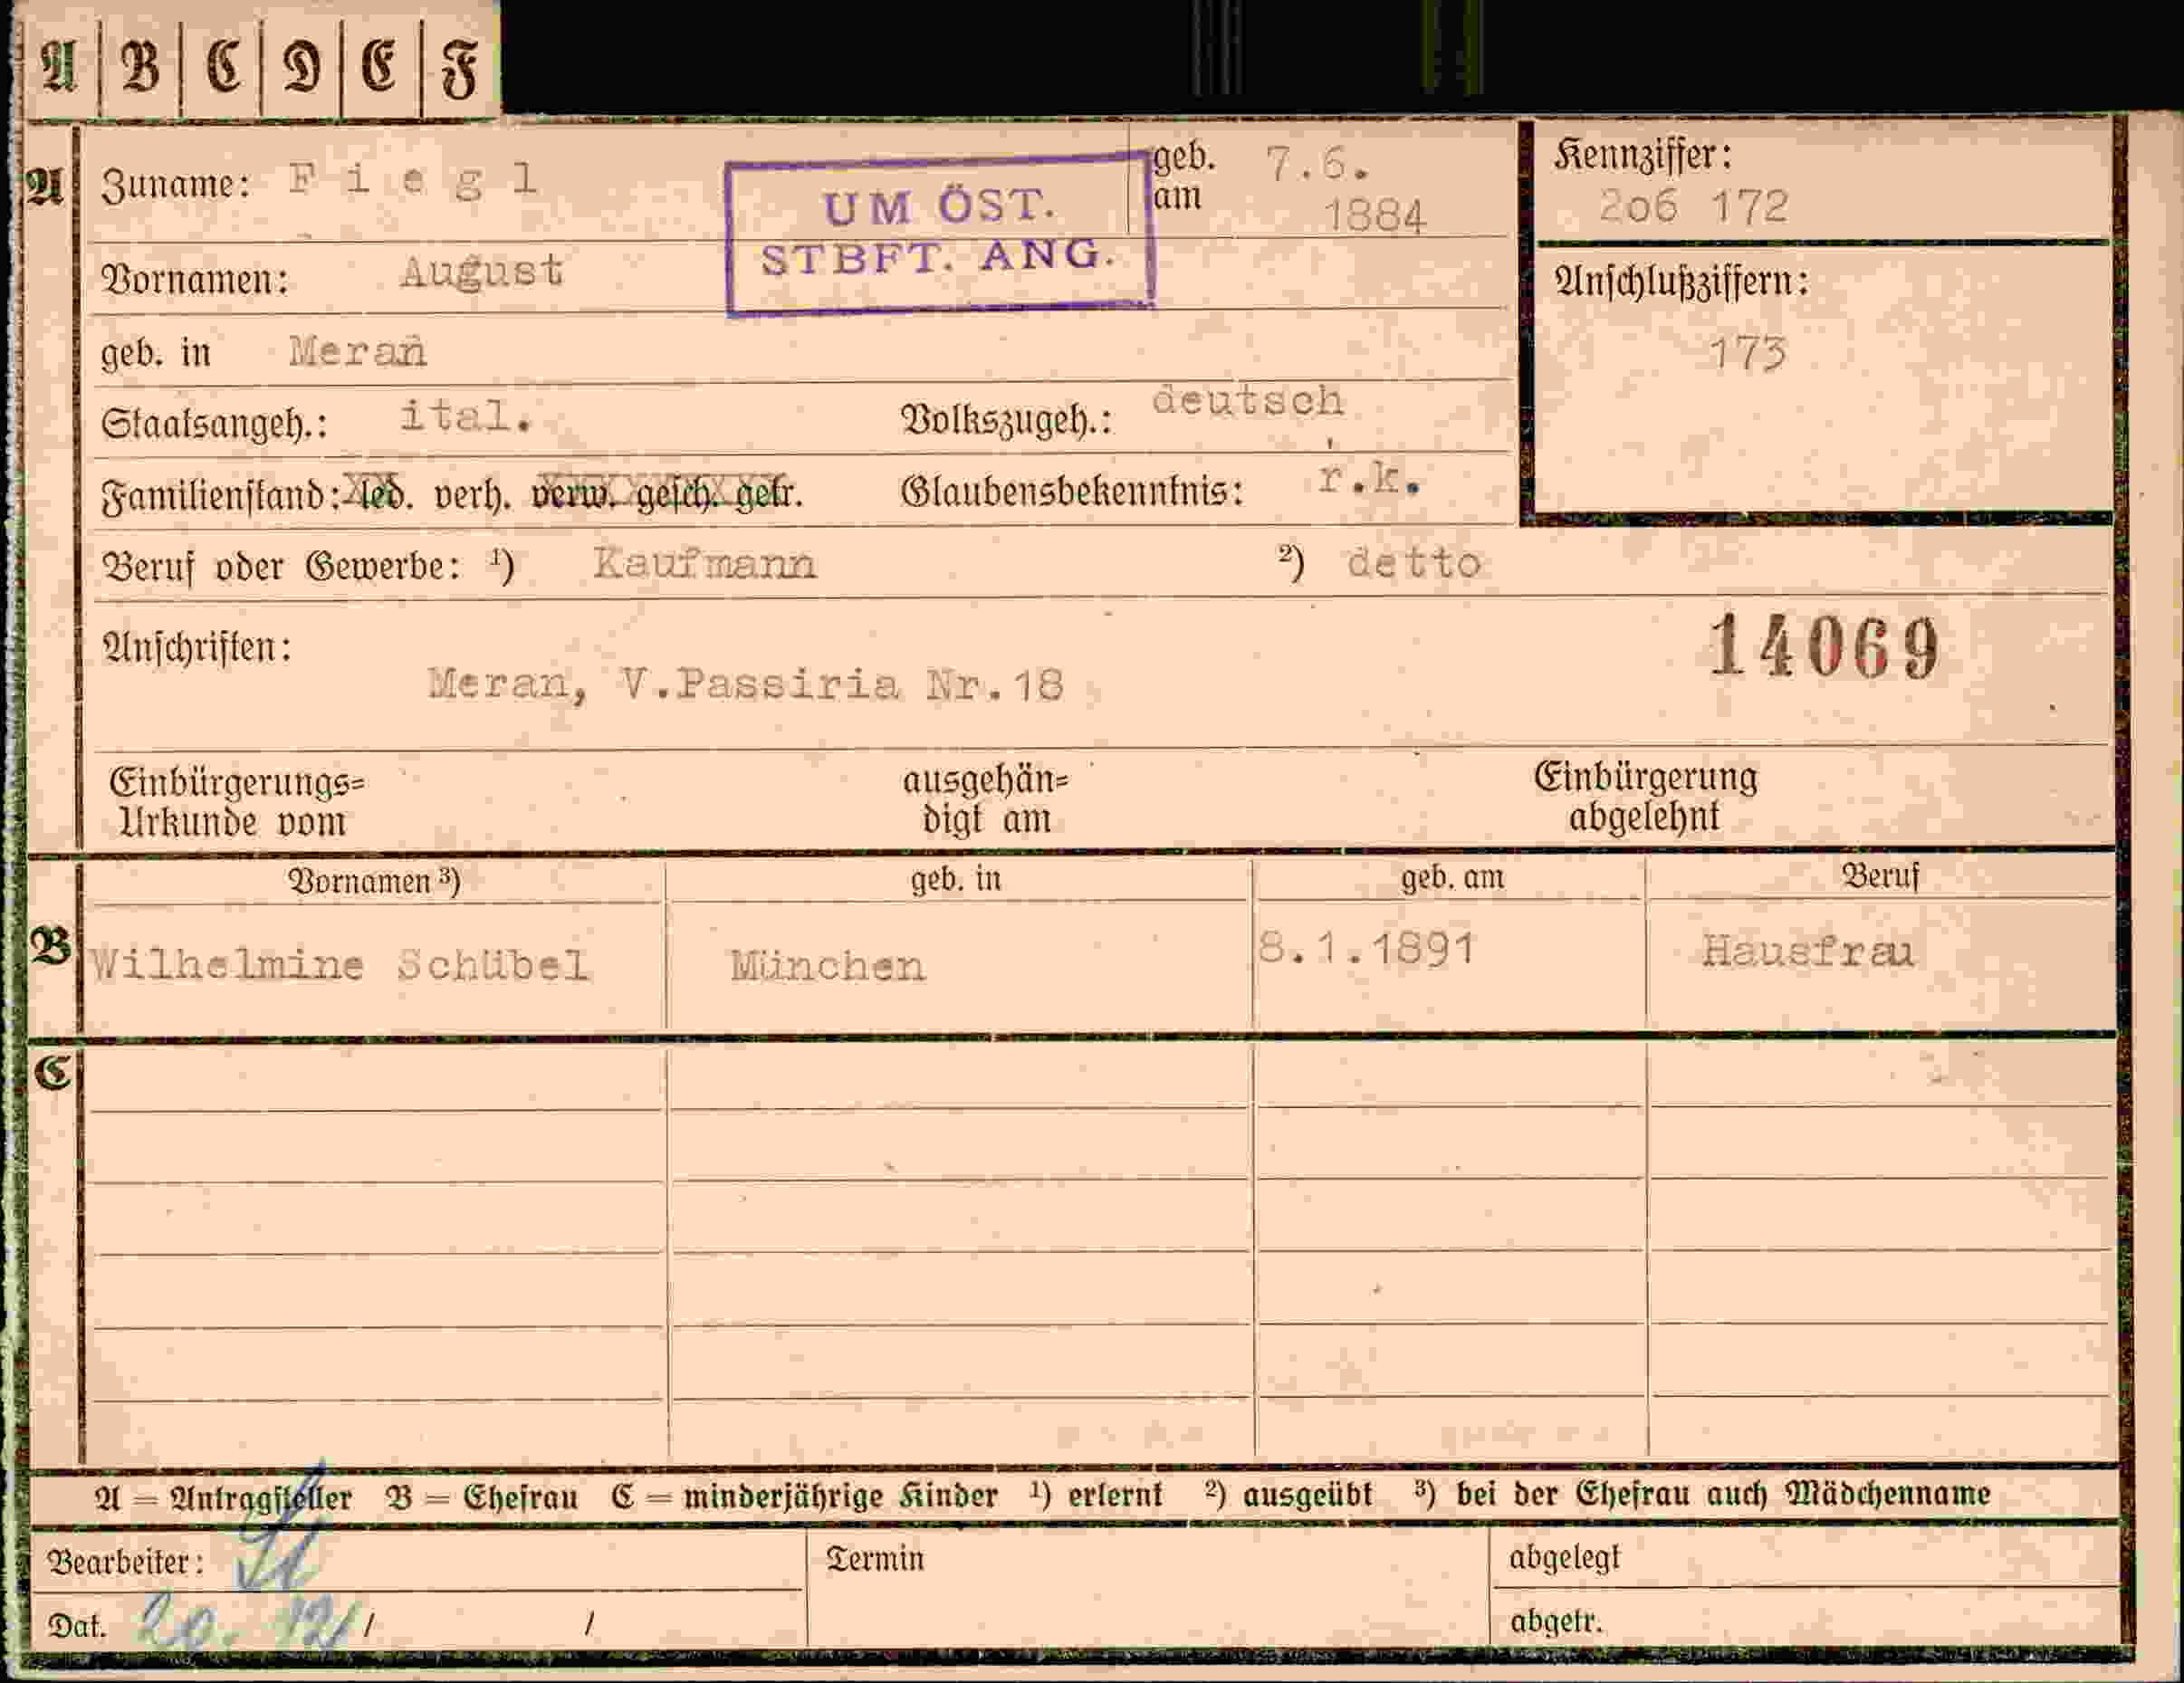 A B C D E F
A Zuname: Fiegl
geb. am 7.6. 1884
UM ÖST.
STBFT. ANG.
Kennziffer:
2o6 172
Vornamen: August
Anschlußziffern:
173
geb. in Meran
Staatsangeh.: ital. Volkszugeh.: deutsch
Familienstand: led. verh. verw. gesch. getr. Glaubensbekenntnis: r.k.
Beruf oder Gewerbe: ¹) Kaufmann ²) detto
Anschriften:
14069
Meran, V.Passiria Nr.18
Einbürgerungs= ausgehän= Einbürgerung
Urkunde vom digt am abgelehnt
Vornamen ³) geb. in geb. am Beruf
B Wilhelmine Schübel München 8.1.1891 Hausfrau
C
A = Antragsteller B = Ehefrau C = minderjährige Kinder ¹) erlernt ²) ausgeübt ³) bei der Ehefrau auch Mädchenname
Bearbeiter: Termin abgelegt
Dat. 20. 12 / / abgetr.